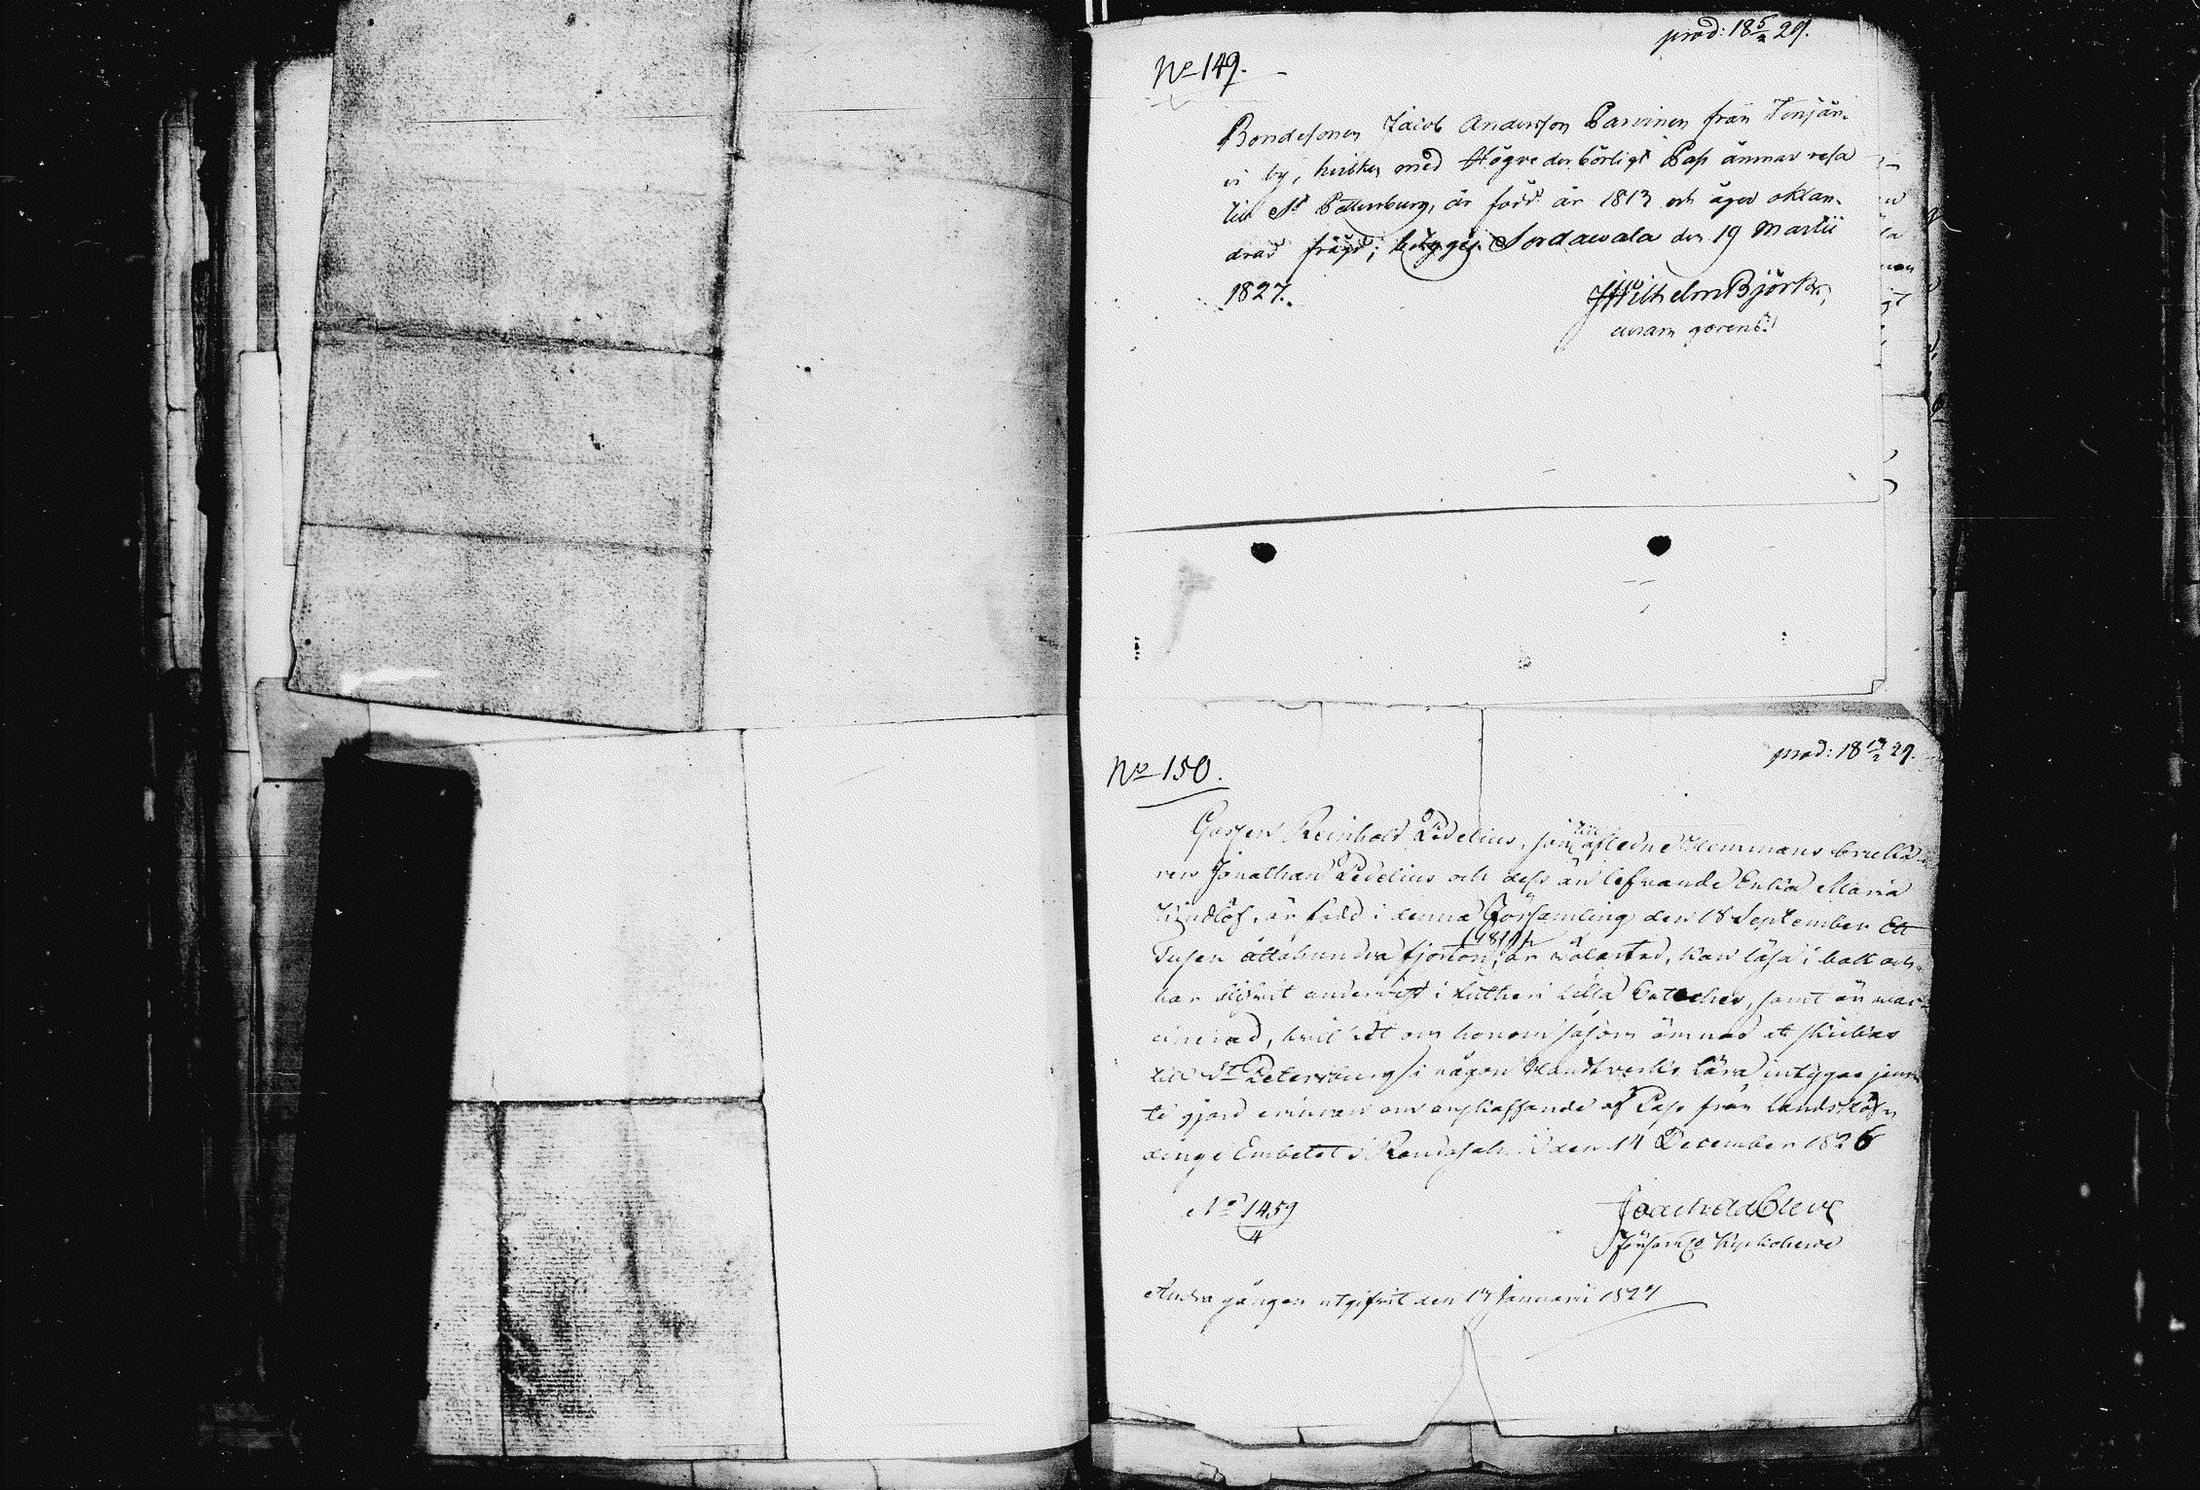 prod: 18 5/2 29.
No 149.
Bondesonen Jacob Andersson Parvinen från Tenjär-
vi by, hvilken med Högvederbörligt Pass ämnar resa
till St Pettersburg, är född år 1813 och äger oklan-
drad fräjd; betygas Sordawala den 19 Martii
1827.
Wilhelm Björk
curam gerens.
prod: 18 17/2 29.
No 150.
Gossen Reinhold Zidelius, son till afledne Hemmans
ren Jonathan Zidelius och dess än lefvande Enka Maria
är född i denna Församling den 18 September Ett
Tusen åttahundra fjorton, (1814) är kan läsa i bok och
har undervist i Lutheri Lilla Cateches, samt är vac-
cinerad, hvilket om honom såsom ämnad at skickas
till St Petersburg i någon Handtverks Lära intygas jem-
te gjord om anskaffande af Pass från Landshöf
dinge Embetet i den 14 December 1826
No 1459
4
Joach Cleve
Församl Kyrkoherde
Andra gången utgifvit den 17 Januarii 1827